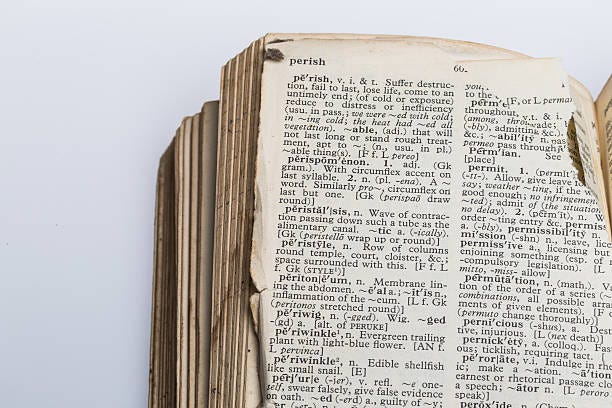 perish
66
pĕ'rish, v. i. & t. Suffer destruc-
tion, fail to last, lose life, come to an
untimely end; (of cold or exposure)
reduce to distress or inefficiency
(usu. in pass.; we were ~ed with cold;
in ~ing cold; the heat had ~ed all
vegetation). ~able, (adj.) that will
not last long or stand rough treat-
ment, apt to ~; (n., usu. in pl.)
~able thing(s). [F f. L pereo]
pĕrispōm'ĕnon. 1. adj. (Gk
gram.). With circumflex accent on
last syllable. 2. n (pl. -ena). A ~
word. Similarly pro~, circumflex on
last but one. [Gk (perispaō draw
round)]
pĕristăl'|sis, n. Wave of contrac-
tion passing down such a tube as the
alimentary canal. ~tic a. (-ically).
[Gk (peristellō wrap up or round)]
pĕ'ristȳle, n. Row of columns
round temple, court, cloister, &c.;
space surrounded with this. [F f. L
f. Gk (STYLE¹)]
pĕriton|ē'um, n. Membrane lin-
ing the abdomen. ~ē'al a.; ~īt'is n.,
inflammation of the ~eum. [L f. Gk
(peritonos stretched round)]
pĕ'riwig, n. (-gged). Wig. ~ged
(-gd) a. [alt. of PERUKE]
pĕ'riwinkle¹, n. Evergreen trailing
plant with light-blue flower. [AN f.
L pervinca]
pĕ'riwinkle², n. Edible shellfish
like small snail. [E]
pĕr'jur|e (-jer), v. refl. ~e one-
self, swear falsely, give false evidence
on oath. (-erd) a., guilty of ~y;
you,
to the
pĕrm'e [F, or L perman
throughout,
(among, through
(-bly), admitting &c.
~; ~abil'ity n. pass
permeo pass through
Pĕrm'ian. See
[place]
permit. 1. (permi't)
(-tt-). Allow, give leave to
say; weather ~ting, if the w
good enough; no infringement
~ted); admit of (the situation
no delay). 2. (pĕrm'it), n. W
order ~ting entry &c. permiss
a. (-bly), permissibil'ity n.
mi'ssion (-shn) n., leave, lice
permiss'ive a., licensing but
enjoining something (esp. of
-compulsory legislation). [L
mitto, -miss- allow]
pĕrmūtā'tion, n. (math.). Va
tion of the order of a series (~
combinations, all possible arran
ments of given elements). [F
(permuto change thoroughly)]
perni'cious (-shus), a. Dest
tive, injurious. [L (nex death)]
pernick'ĕty, a. (colloq.). Fast
ous; ticklish, requiring tact. [
pĕ'ror|āte, v.i. Indulge in rh
ic; make a ~ation. ~ā'tion n.
earnest or rhetorical passage clo
a speech. ~ātor n. [L peroro
perŏx'ide,